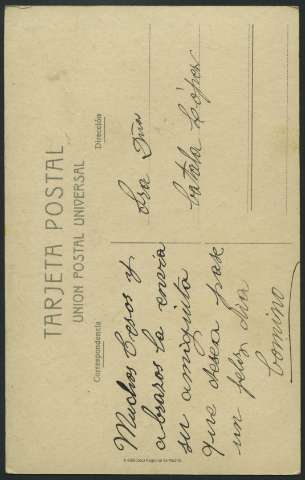 TARJETA POSTAL
UNION POSTAL UNIVERSAL
Correspondencia
Dirección
Muchos besos y
abrazos la envia
su amiguita
que desea pase
un feliz dia
Comino
Sra Dña
Catala López